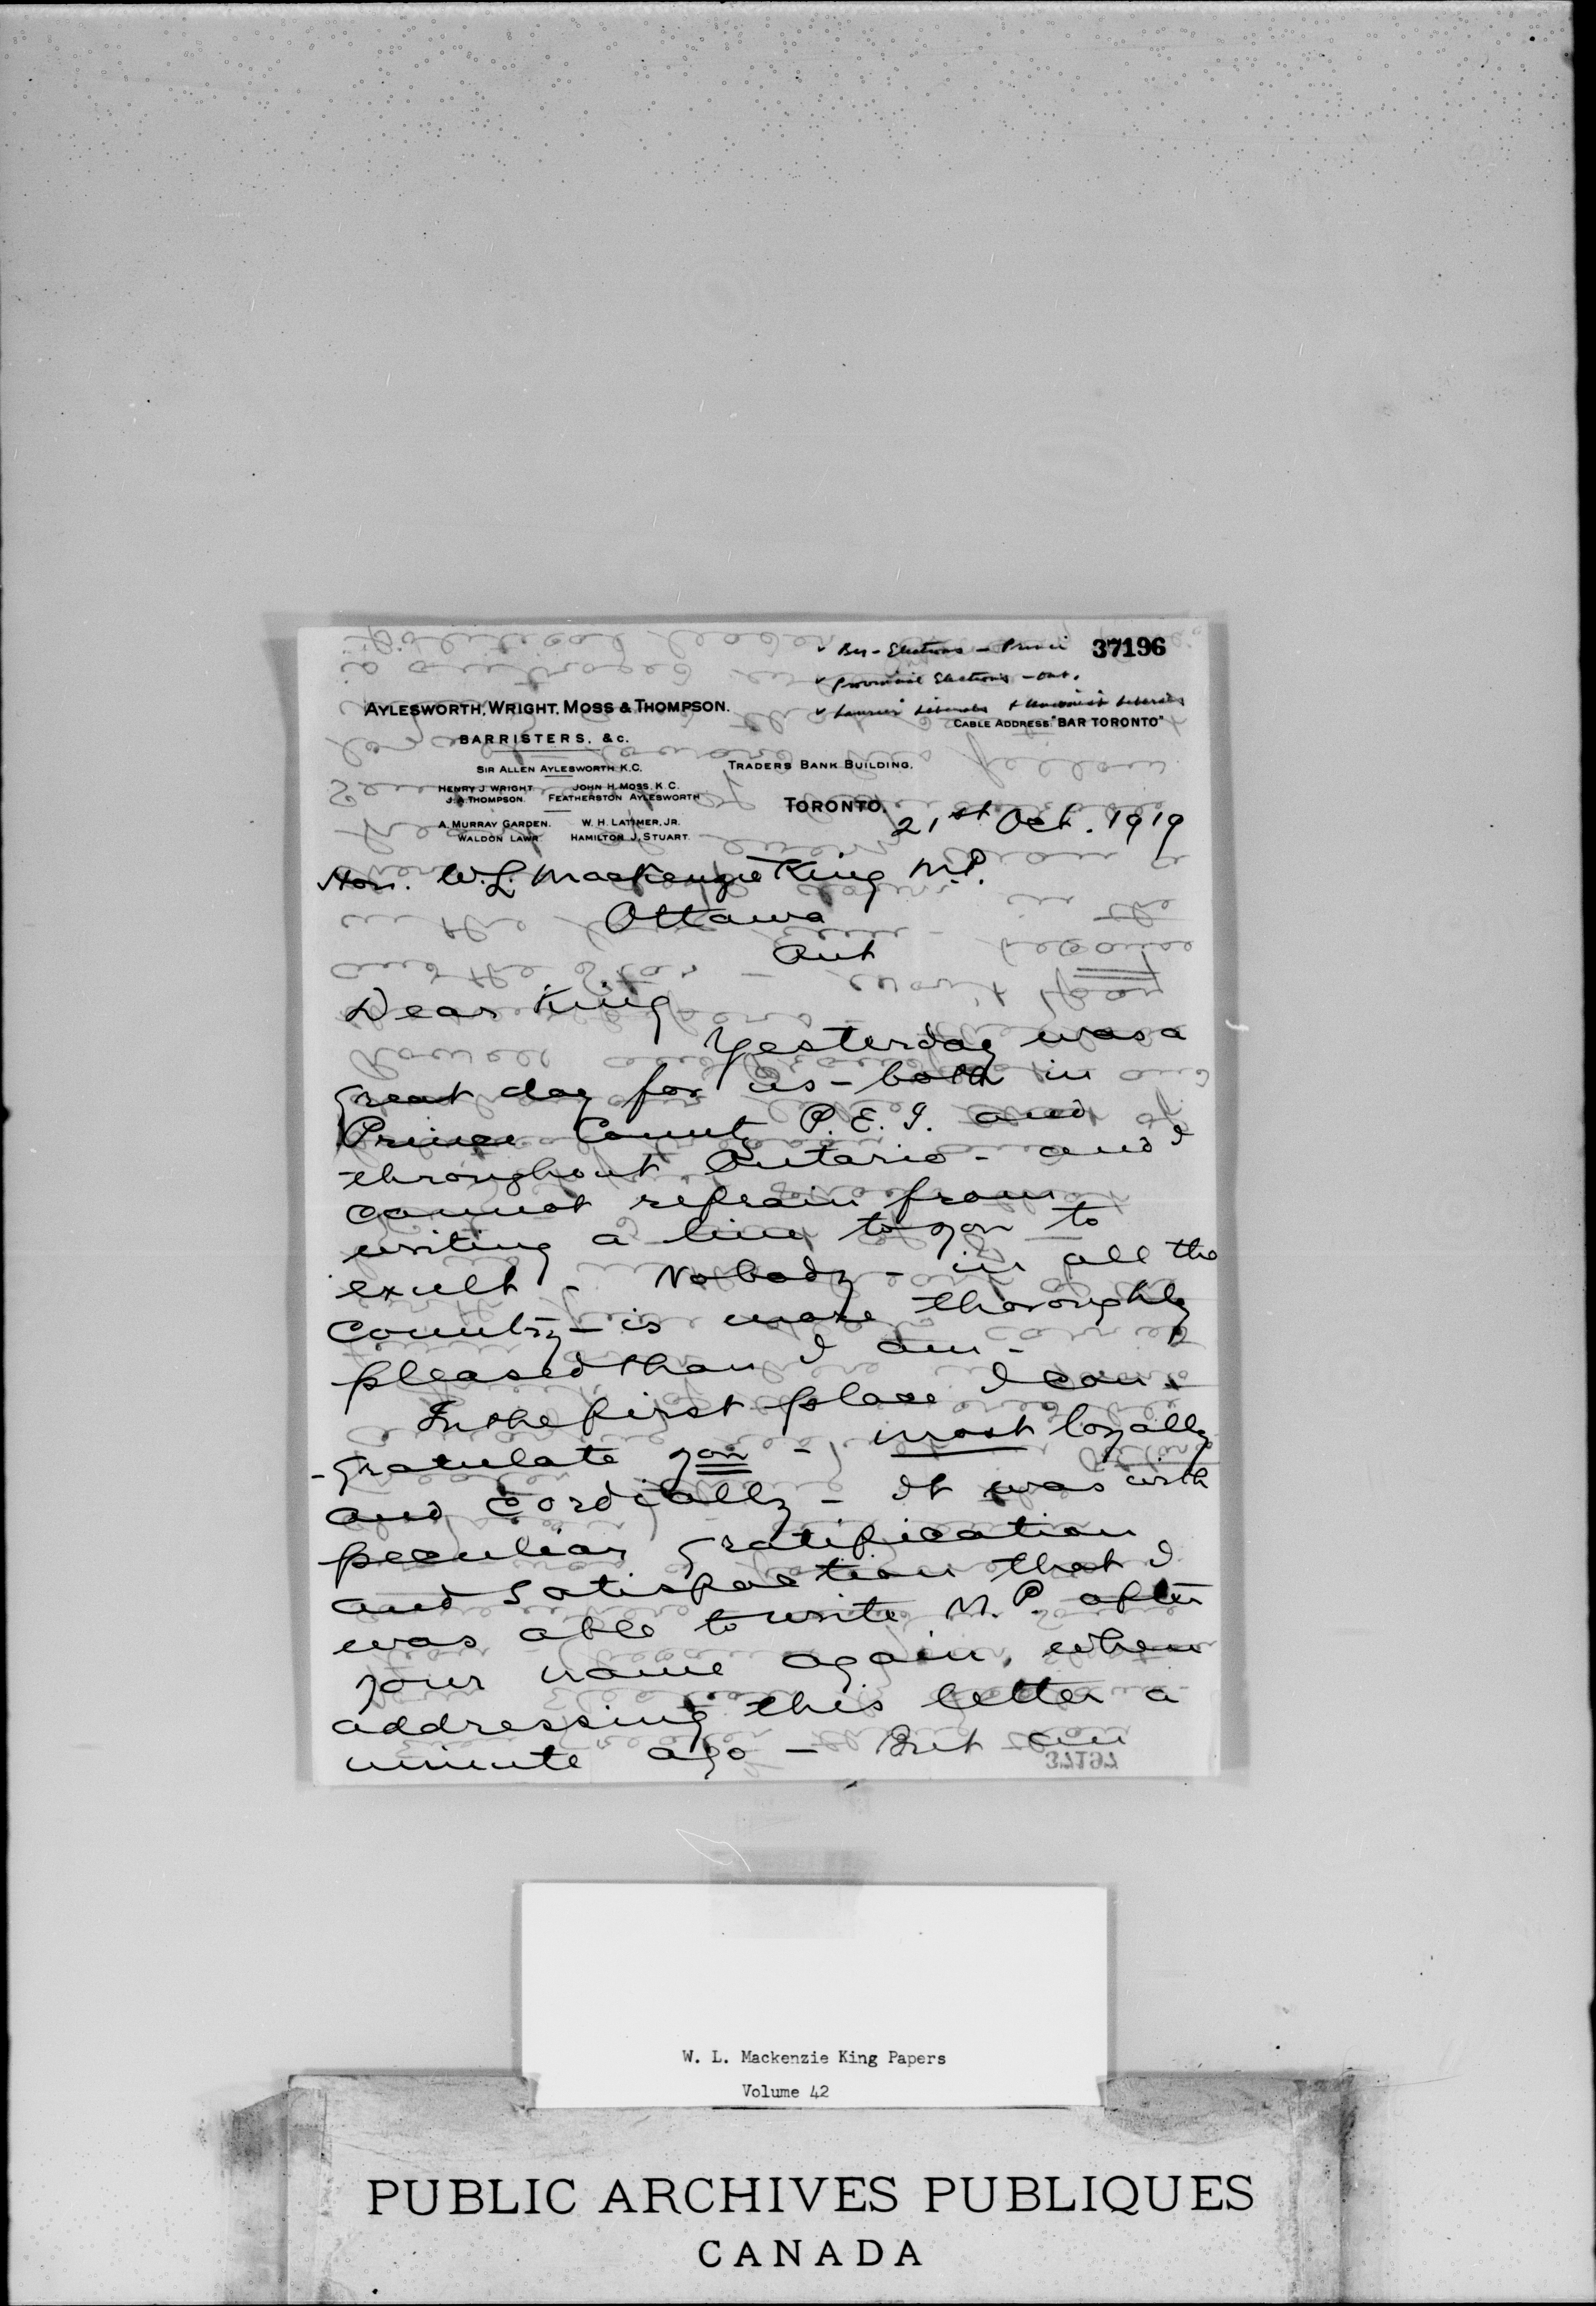 ✓ Bye-Elections - Prince 37196
✓ Provincial Elections - Ont.
✓ Laurier Liberals & Unionist Liberals
AYLESWORTH, WRIGHT, MOSS & THOMPSON.
CABLE ADDRESS "BAR TORONTO"
BARRISTERS, &c.
SIR ALLEN AYLESWORTH K.C.
TRADERS BANK BUILDING,
HENRY J. WRIGHT JOHN H. MOSS, K.C.
J. A. THOMPSON. FEATHERSTON AYLESWORTH
TORONTO,
A. MURRAY GARDEN. W. H. LATIMER, JR.
WALDON LAWR HAMILTON J. STUART.
21st Oct. 1919
Hon. W. L. Mackenzie King M.P.
Ottawa
Ont
Dear King
Yesterday was a
great day for us - both in
Prince County P.E.I. and
throughout Ontario - and I
cannot refrain from
writing a line to you to
exult - Nobody - in all the
country - is more thoroughly
pleased than I am -
In the first place I con-
-gratulate you - most loyally
and cordially - It was with
peculiar gratification
and satisfaction that I
was able to write M.P. after
your name again, when
addressing this letter a
minute ago - But am
37197
W. L. Mackenzie King Papers
Volume 42
PUBLIC ARCHIVES PUBLIQUES
CANADA